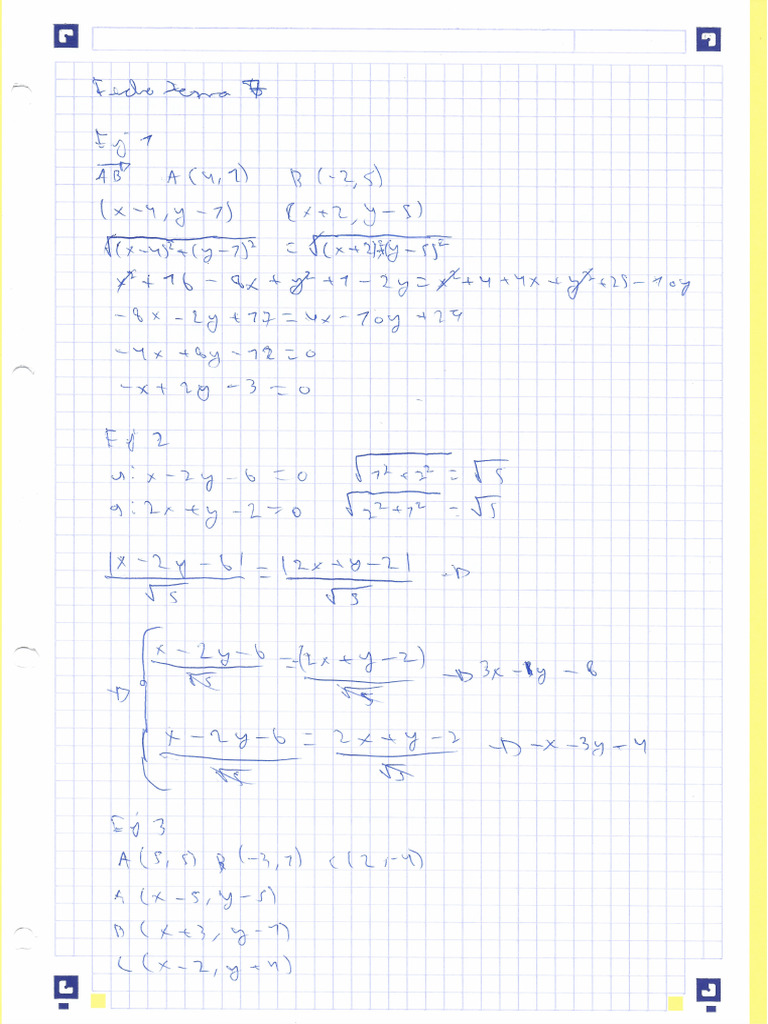 Ej 1
AB A(4,1) B(-2,5)
(x-4, y-1) (x+2, y-5)
√(x-4)²+(y-1)² = √(x+2)²+(y-5)²
x²+16-8x+y²+1-2y=x²+4+4x+y²+25-10y
-8x-2y+17=4x-10y+29
-4x+8y-12=0
-x+2y-3=0
Ej 2
r: x-2y-6=0 √1²+2² = √5
s: 2x+y-2=0 √2²+1² = √5
|x-2y-6|/√5 = |2x+y-2|/√5 →
→ { x-2y-6/√5 = -(2x+y-2)/√5 → 3x-1y-8
x-2y-6/√5 = 2x+y-2/√5 → -x-3y-4
Ej 3
A(5,5) B(-3,1) C(2,-4)
A(x-5, y-5)
B(x+3, y-1)
C(x-2, y+4)